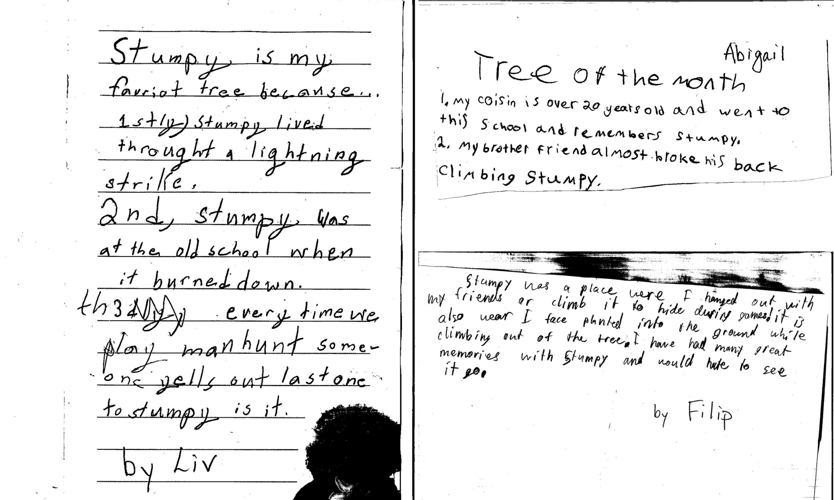 Stumpy is my
favriot tree because...
1stly) stumpy lived
throught a lightning
strike.
2nd, stumpy was
at the old school when
it burned down.
th3 every time we
play manhunt some-
one yells out last one
to stumpy is it.
by Liv
Abigail
Tree of the month
1. my coisin is over 20 years old and went to
this school and remembers stumpy.
2. my brother friend almost broke his back
climbing Stumpy.
Stumpy was a place were I hanged out with
my friends or climb it to hide during games. it is
also wear I face planted into the ground while
climbing out of the tree. I have had many great
memories with Stumpy and would hate to see
it go.
by Filip